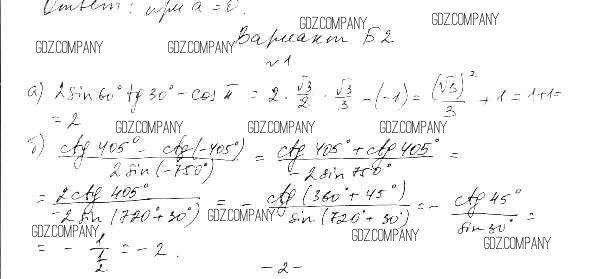 Ответ: при a = 0.
GDZ.COMPANY GDZ.COMPANY GDZ.COMPANY GDZ.COMPANY
Вариант Б2
√1
а) 2sin60° tg30° - cos π = 2 · √3/2 · √3/3 - (-1) = (√3)²/3 + 1 = 1+1=
= 2
GDZ.COMPANY GDZ.COMPANY GDZ.COMPANY
б) (ctg 405° - ctg(-405°))/(2 sin(-750°)) = (ctg 405° + ctg 405°)/(-2sin 750°) =
= (2ctg 405°)/(-2sin(720°+30°)) = - (ctg(360°+45°))/(sin(720°+30°)) = - (ctg 45°)/(sin 30°) =
GDZ.COMPANY GDZ.COMPANY GDZ.COMPANY
= - 1/(1/2) = -2.
-2-